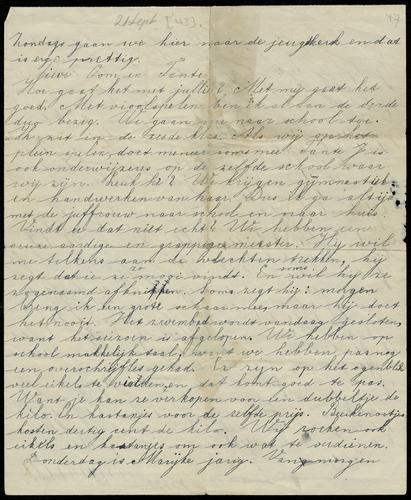 21 Sept ['43].
47
Zondags gaan we hier naar de jeugdkerk en dat
is erg prettig.
Lieve Oom en Tante
Hoe gaat het met jullie? Met mij gaat het
goed. Met vioolspelen ben ik al aan de derde
bezig. We gaan naar school toe.
ik zit in de zesde klas. Als wij op het
plein spelen, doet meneer soms mee. Tante is
ook onderwijzeres op de zelfde school waar
wij zijn. Leuk hè? We krijgen gymnastiek
en handwerken van haar. Dus ik ga altijd
met de juffrouw naar school en naar huis
Vindt u dat niet echt? We hebben een
aardige en grappige meester. Hij wil
me telkens aan de vlechten trekken, hij
zegt dat ie ze zo mooi vindt. En soms wil hij ze
zogenaamd afknippen. Soms zegt hij: morgen
breng ik een grote schaar mee, maar hij doet
het nooit. Het zwembad wordt vandaag gesloten,
want het seizoen is afgelopen. We hebben op
school makkelijk taal, want we hebben pas nog
een overschrijfles gehad. Er zijn op het ogenblik
veel eikels te vinden, en dat komt goed te pas.
Want je kan ze verkopen voor een dubbeltje de
kilo. En kastanjes voor de zelfde prijs. Beukenootjes
kosten dertig cent de kilo. Wij zoeken ook
eikels en kastanjes om ook wat te verdienen.
Donderdag is Marijke jarig. Van morgen